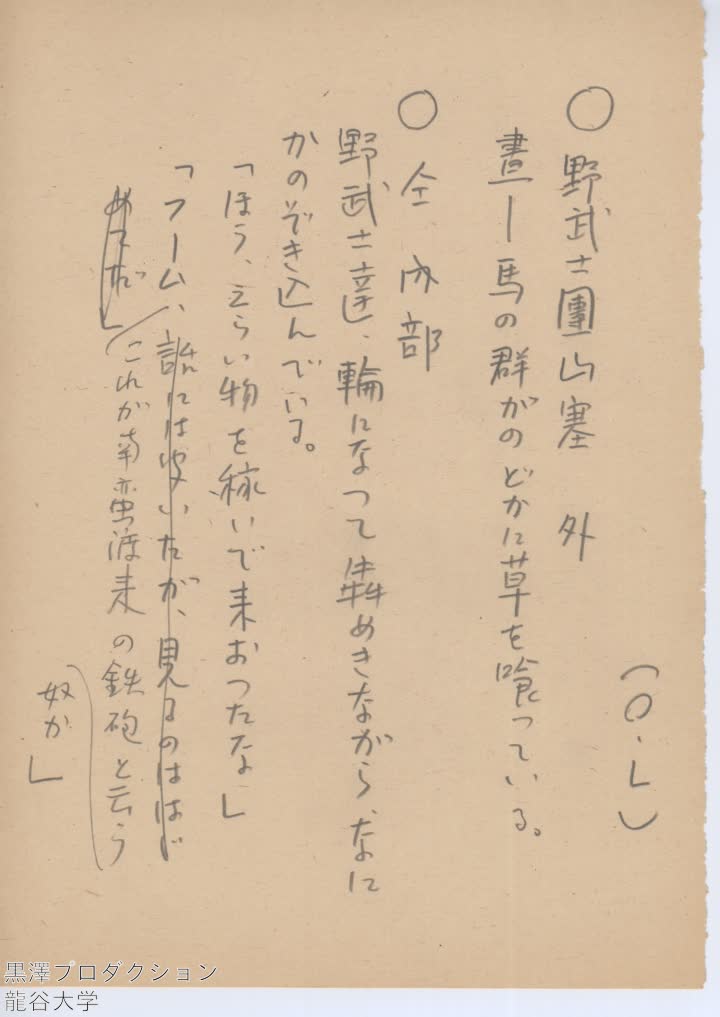 (O.L)
○野武士團山塞 外
晝―馬の群がのどかに草を喰っている。
○仝 内部
野武士達、輪になつて犇めきながら、なに
かのぞき込んでいる。
「ほう、えらい物を稼いで来おつたな」
「フーム、話には聞いたが、見るのははじ
めてだ」これが南蛮渡来の鉄砲と云う
奴か」
黒澤プロダクション
龍谷大学